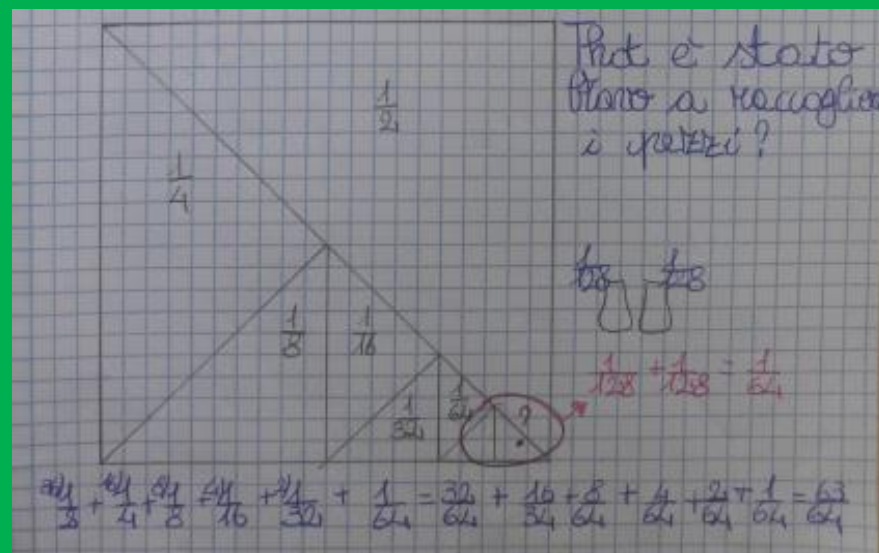 Thot è stato
bravo a raccogliere
i pezzi?
1/2
1/4
1/8
1/16
1/32
1/64
?
1/128 1/128
1/128 + 1/128 = 1/64
1/4 + 1/8 + 1/16 + 1/32 + 1/64 = 32/64 + 16/34 + 8/64 + 4/64 + 2/64 + 1/64 = 63/64